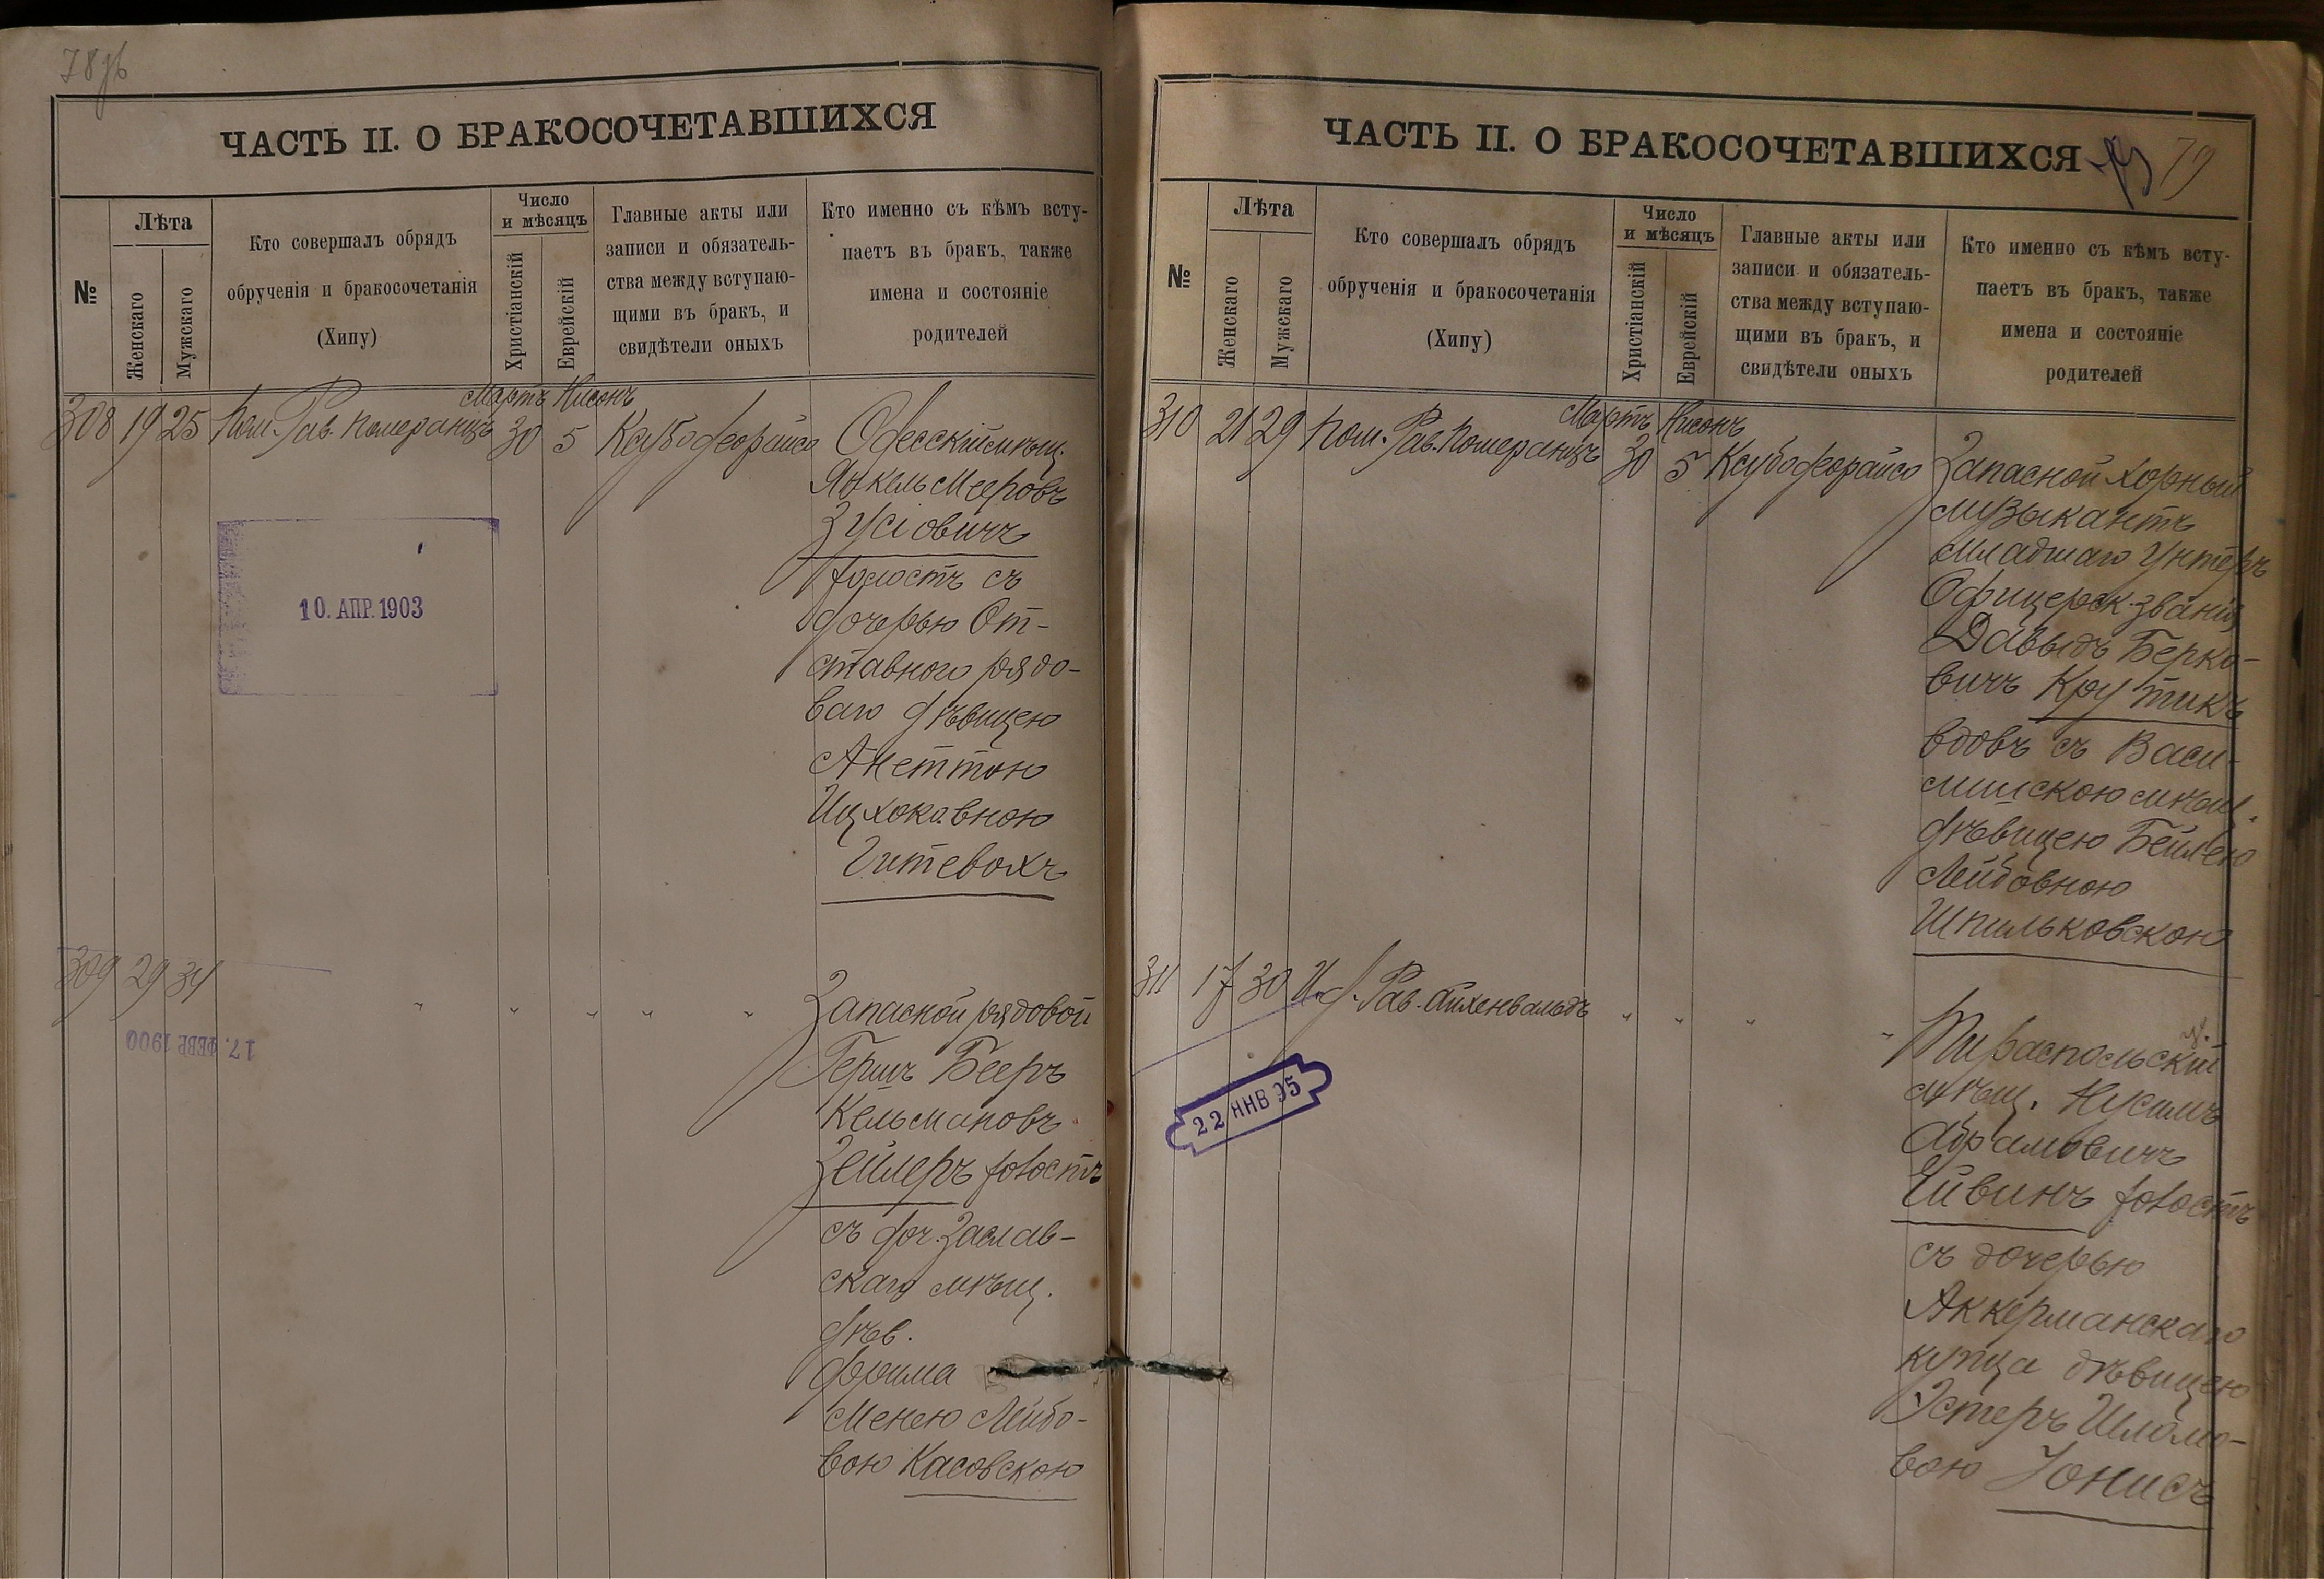 78 об
ЧАСТЬ II. О БРАКОСОЧЕТАВШИХСЯ
№
Лѣта
Женскаго
Мужскаго
Кто совершалъ обрядъ
обрученія и бракосочетанія
(Хипу)
Число
и мѣсяцъ
Христіанскій
Еврейскій
Главные акты или
записи и обязатель-
ства между вступаю-
щими въ бракъ, и
свидѣтели оныхъ
Кто именно съ кѣмъ всту-
паетъ въ бракъ, также
имена и состояніе
родителей
Мартъ Нисонъ
308 19 25 Пом. Рав. Померанцъ 30 5 Ксубо деорайсо
Одесскій мѣщ.
Янкель Мееровъ
Зусіовичъ
холостъ съ
дочерью От-
ставного рядо-
ваго дѣвицею
Анеттою
Ицхоковною
Читевохъ
10. АПР. 1903
309 29 34 " " " " "
Запасной рядовой
Гершъ Бееръ
Кельмановъ
Зейлеръ холостъ
съ доч. Заслав-
скаго мѣщ.
дѣв.
Фрима
Менею Лейбо-
вою Касовскою
17. ФЕВР. 1900
ЧАСТЬ II. О БРАКОСОЧЕТАВШИХСЯ
79
№
Лѣта
Женскаго
Мужскаго
Кто совершалъ обрядъ
обрученія и бракосочетанія
(Хипу)
Число
и мѣсяцъ
Христіанскій
Еврейскій
Главные акты или
записи и обязатель-
ства между вступаю-
щими въ бракъ, и
свидѣтели оныхъ
Кто именно съ кѣмъ всту-
паетъ въ бракъ, также
имена и состояніе
родителей
Мартъ Нисонъ
310 21 29 Пом. Рав. Померанцъ 30 5 Ксубо деорайсо
Запасной хорный
музыкантъ
младшаго Унтеръ
Офицерск. званія
Давыдъ Берко-
вичъ Крутикъ
вдовъ съ Васи-
лишскою мѣщ.
дѣвицею Бейлею
Лейбовною
Шпильковскою
311 17 30 И. д. Рав. Айхенвальдъ " " " "
Тираспольскій
мѣщ. Нусимъ
Абрамовичъ
Ейвинъ холостъ
съ дочерью
Аккерманскаго
купца дѣвицею
Эстеръ Шломо-
вою Іонисъ
22 ЯНВ 95